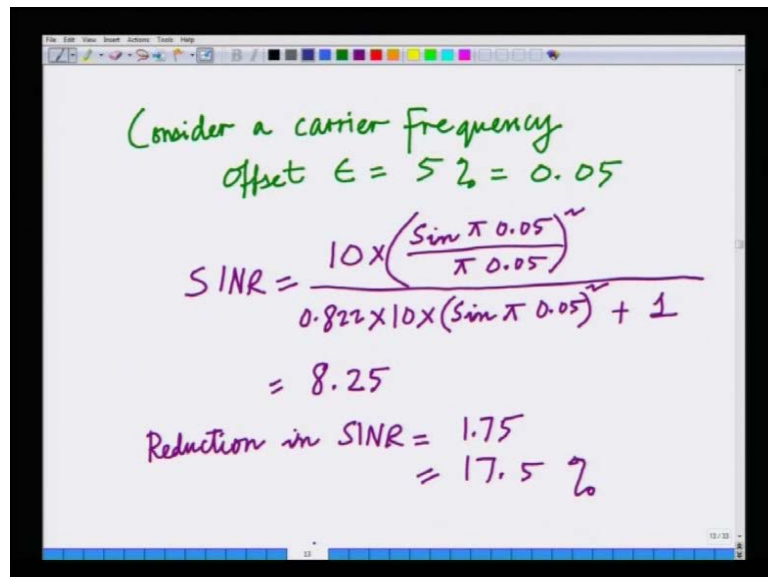 File Edit View Insert Actions Tools Help
Consider a carrier frequency
offset ϵ = 5 % = 0.05
SINR = 10 × (Sin π 0.05 / π 0.05)² / 0.822 × 10 × (Sin π 0.05)² + 1
= 8.25
Reduction in SINR = 1.75
= 17.5 %
13